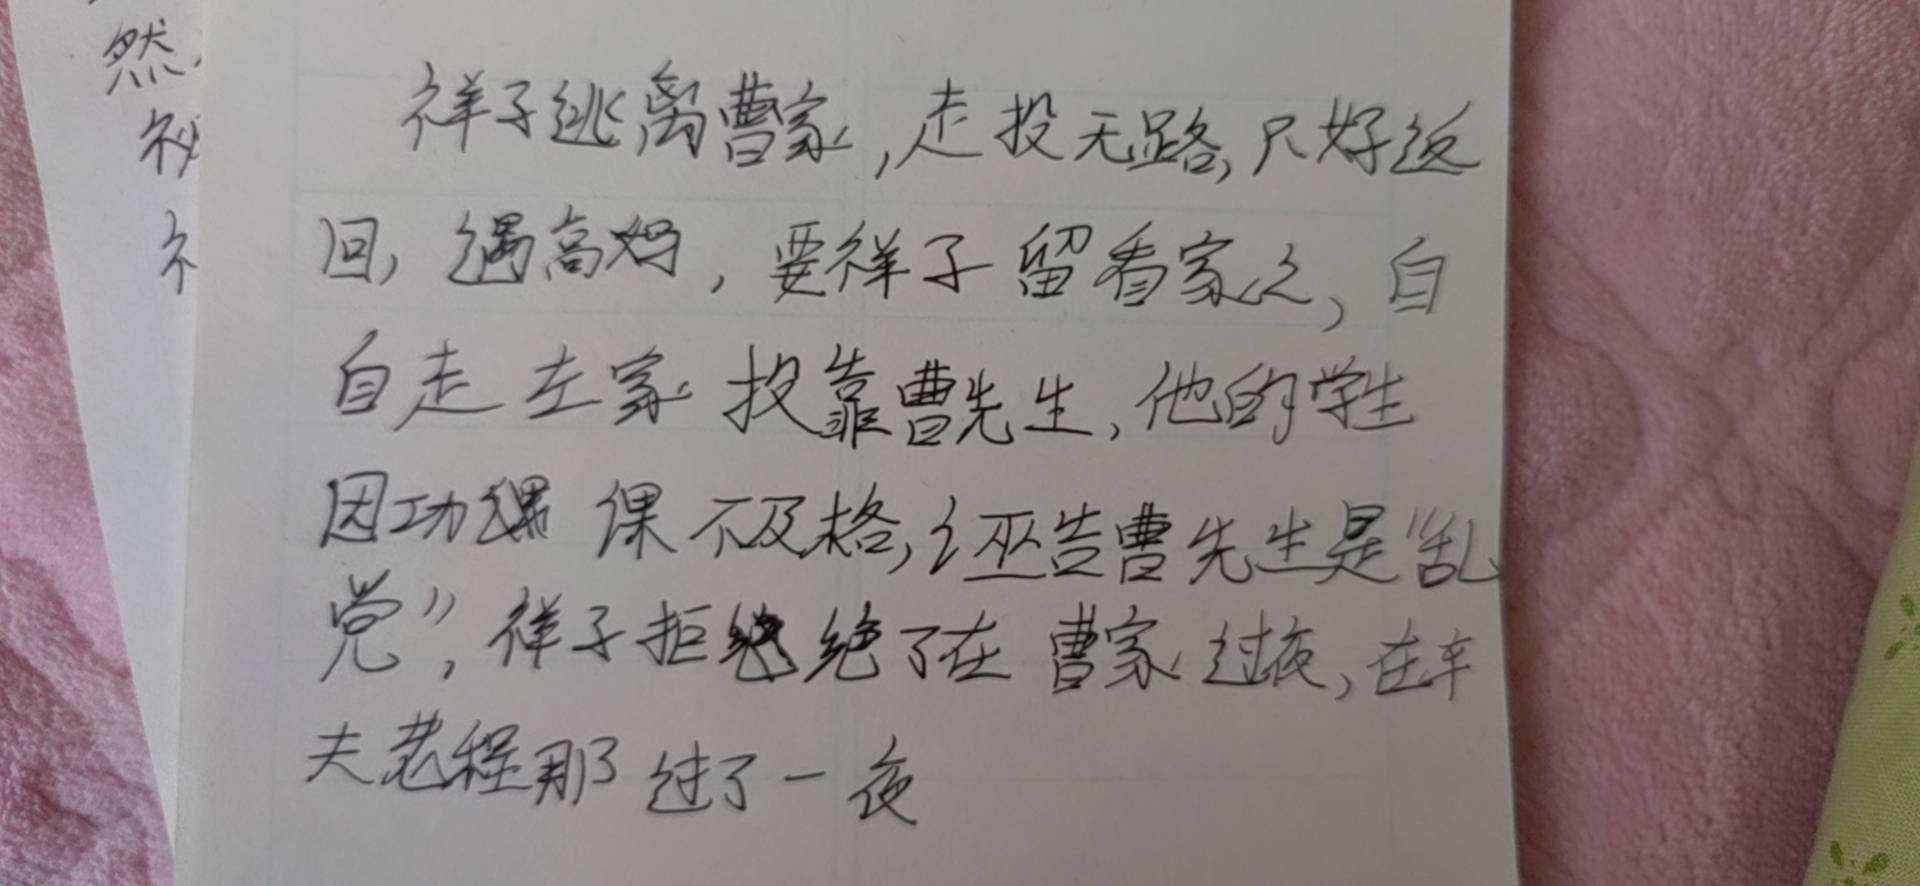 然,
祥子逃离曹家,走投无路,只好返
回,遇高妈,要祥子留看家之,自
自走左家投靠曹先生,他的学生
因功课不及格,诬告曹先生是“乱
党”,祥子拒绝了在曹家过夜,在车
夫老程那了过了一夜